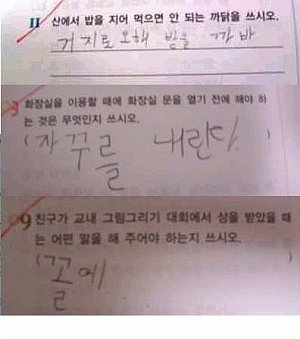 11 산에서 밥을 지어 먹으면 안 되는 까닭을 쓰시오.
거지로 오해 받을 까바
3 화장실을 이용할 때에 화장실 문을 열기 전에 해야 하
는 것은 무엇인지 쓰시오.
(자꾸를 내린다)
9 친구가 교내 그림그리기 대회에서 상을 받았을 때
는 어떤 말을 해 주어야 하는지 쓰시오.
(꼴에)